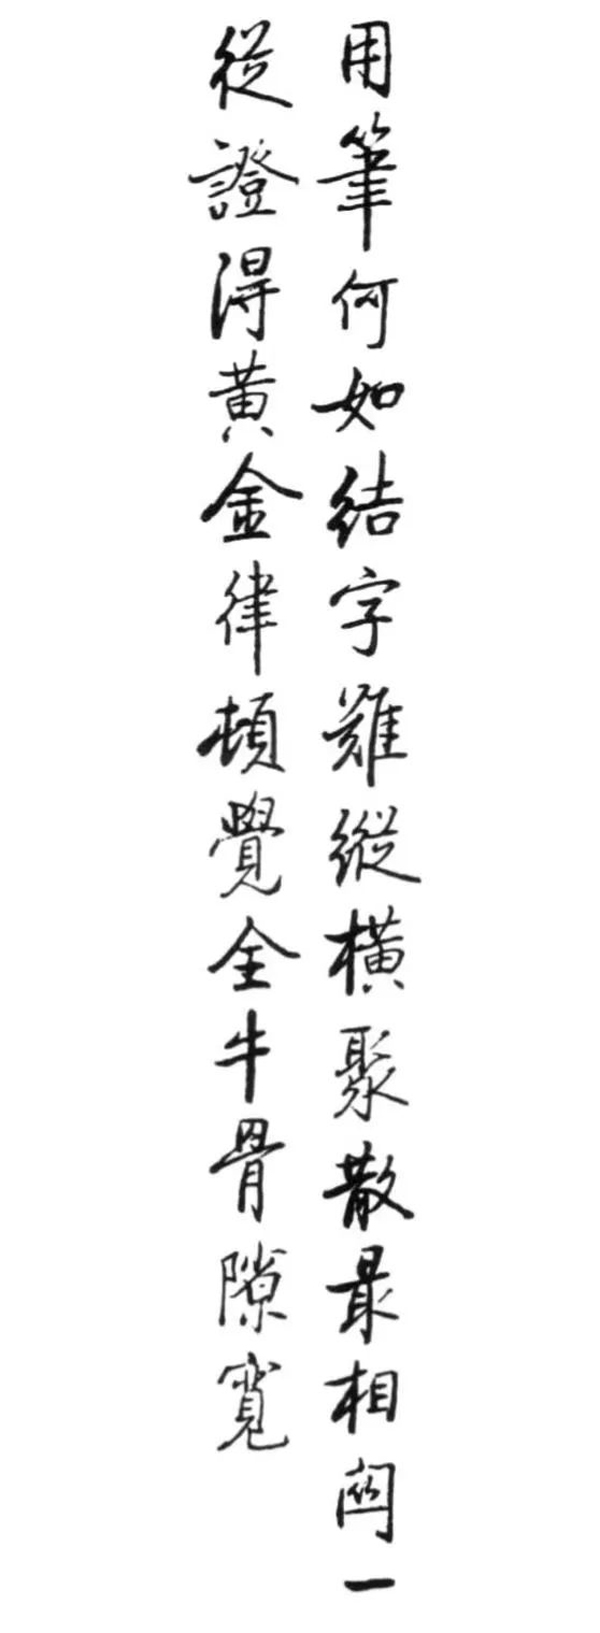 用筆何如結字難縱橫聚散最相關一
從證得黃金律頓覺全牛骨隙寬